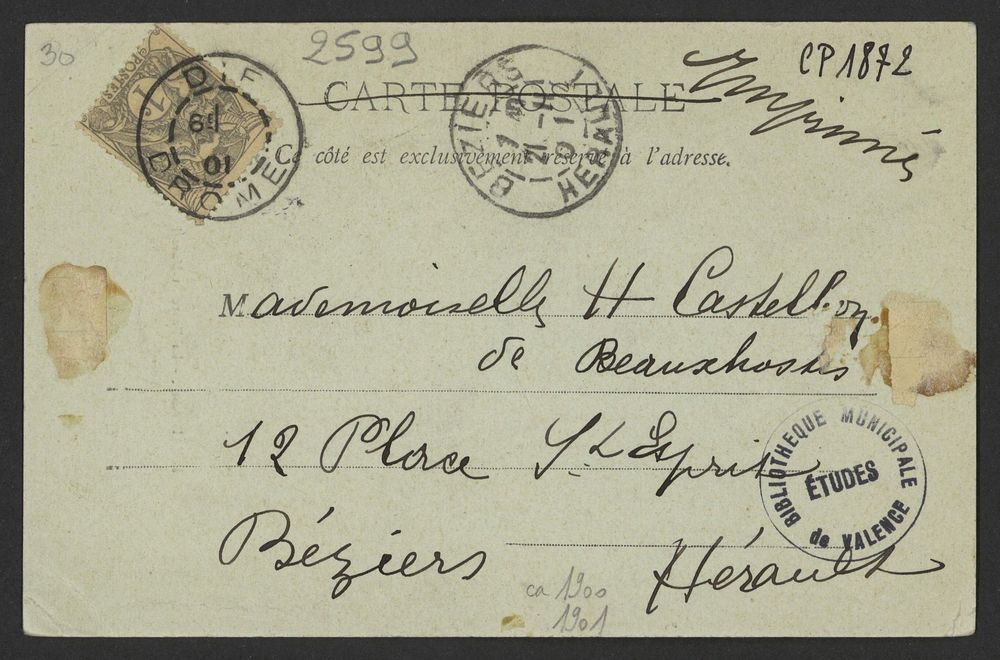 30
2599
CP 1872
CARTE POSTALE
Imprimés
Ce côté est exclusivement réservé à l'adresse.
POSTES
1
DIE
19
01
DROME
BEZIERS
21
01
HERAULT
Mademoiselle H Castelbon
de Beauxhostes
12 Place St Esprit
Béziers Hérault
BIBLIOTHEQUE MUNICIPALE
ÉTUDES
de VALENCE
ca 1900
1901